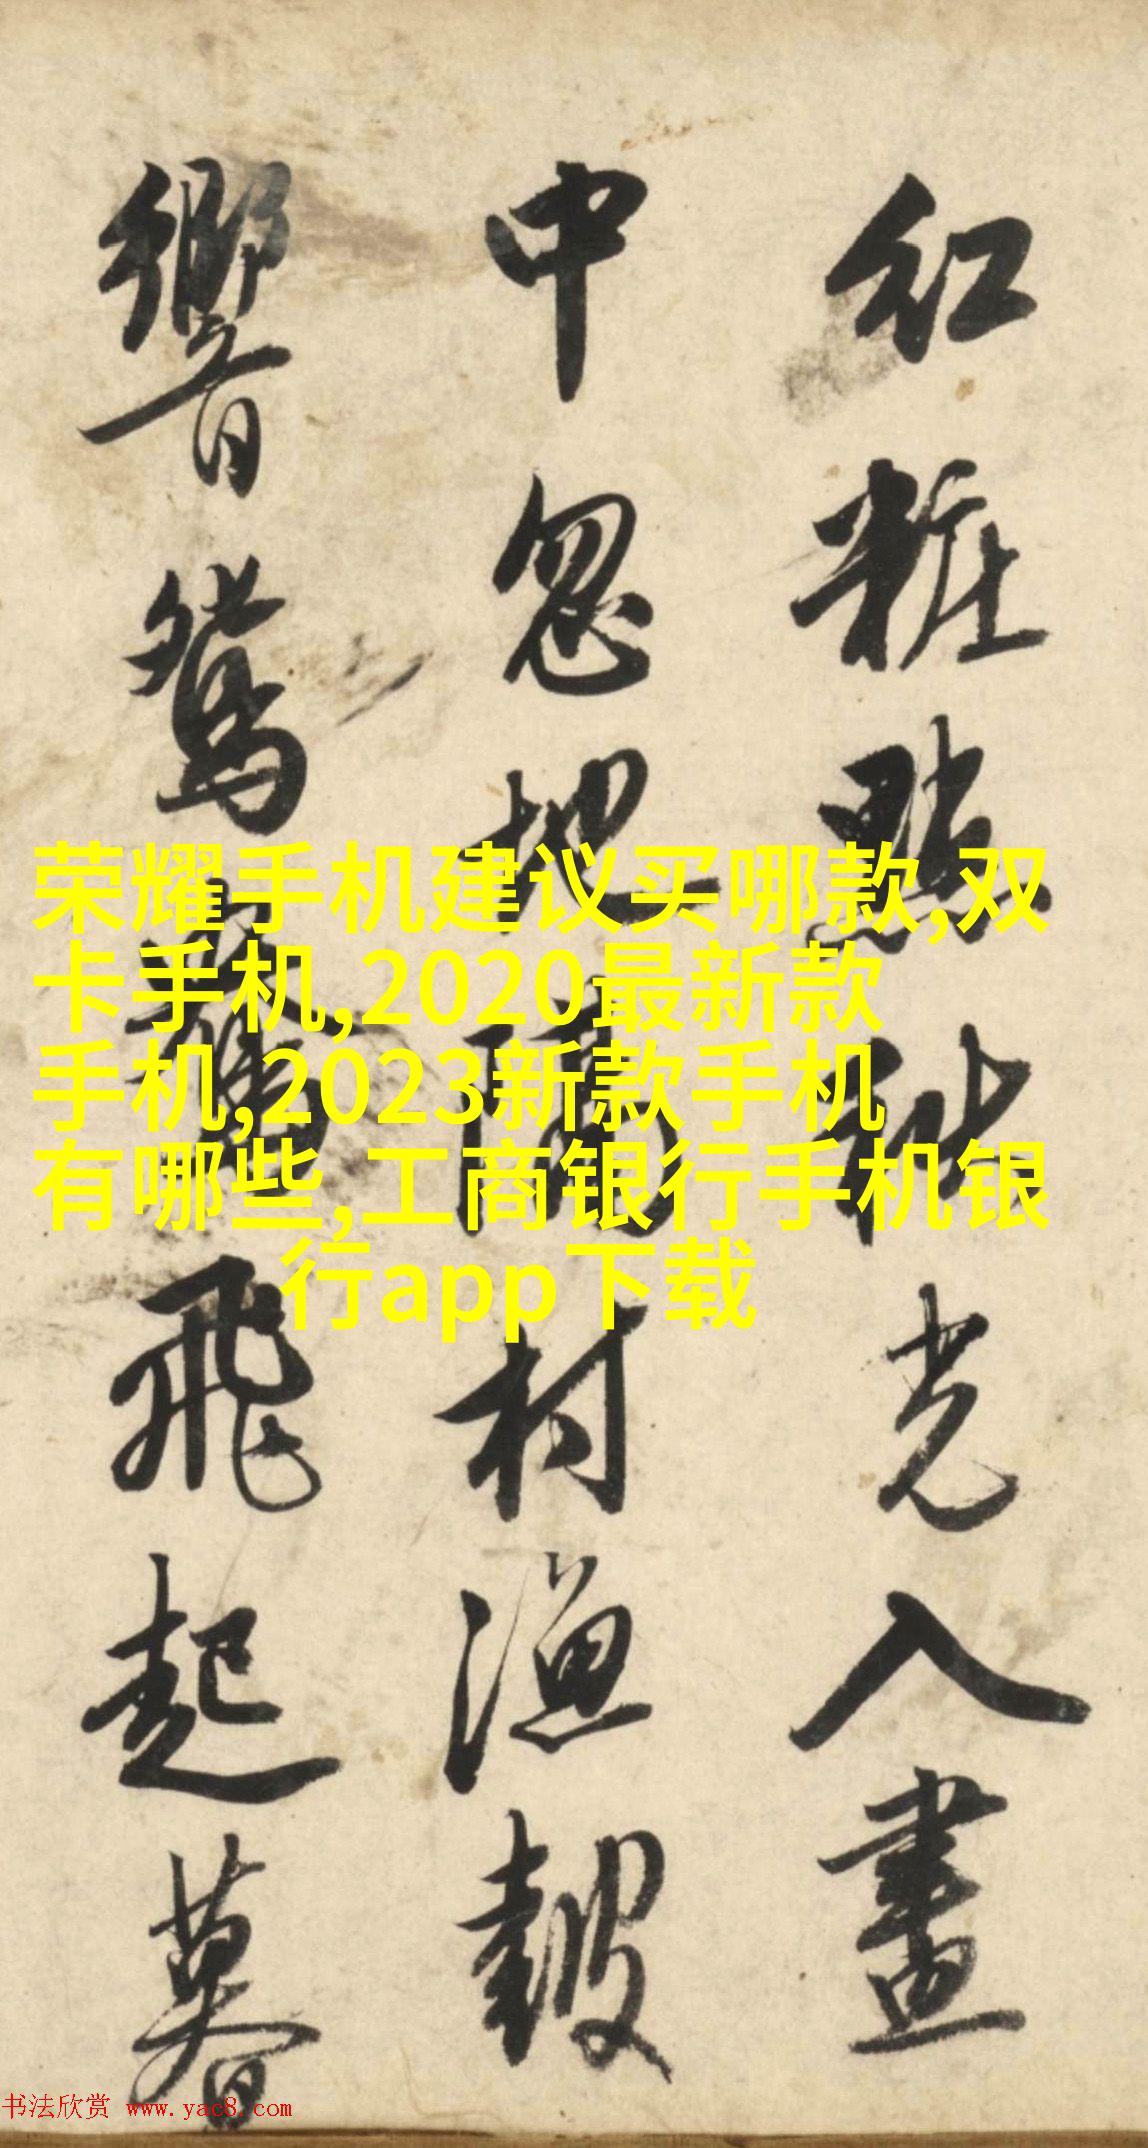 红粧點秋光入畫
中忽地隔村漁鼓
響鴛驚飛起暮
荣耀手机建议买哪款,双
卡手机,2020最新款
手机,2023新款手机
有哪些,工商银行手机银
行app下载
书法欣赏 www.yac8.com